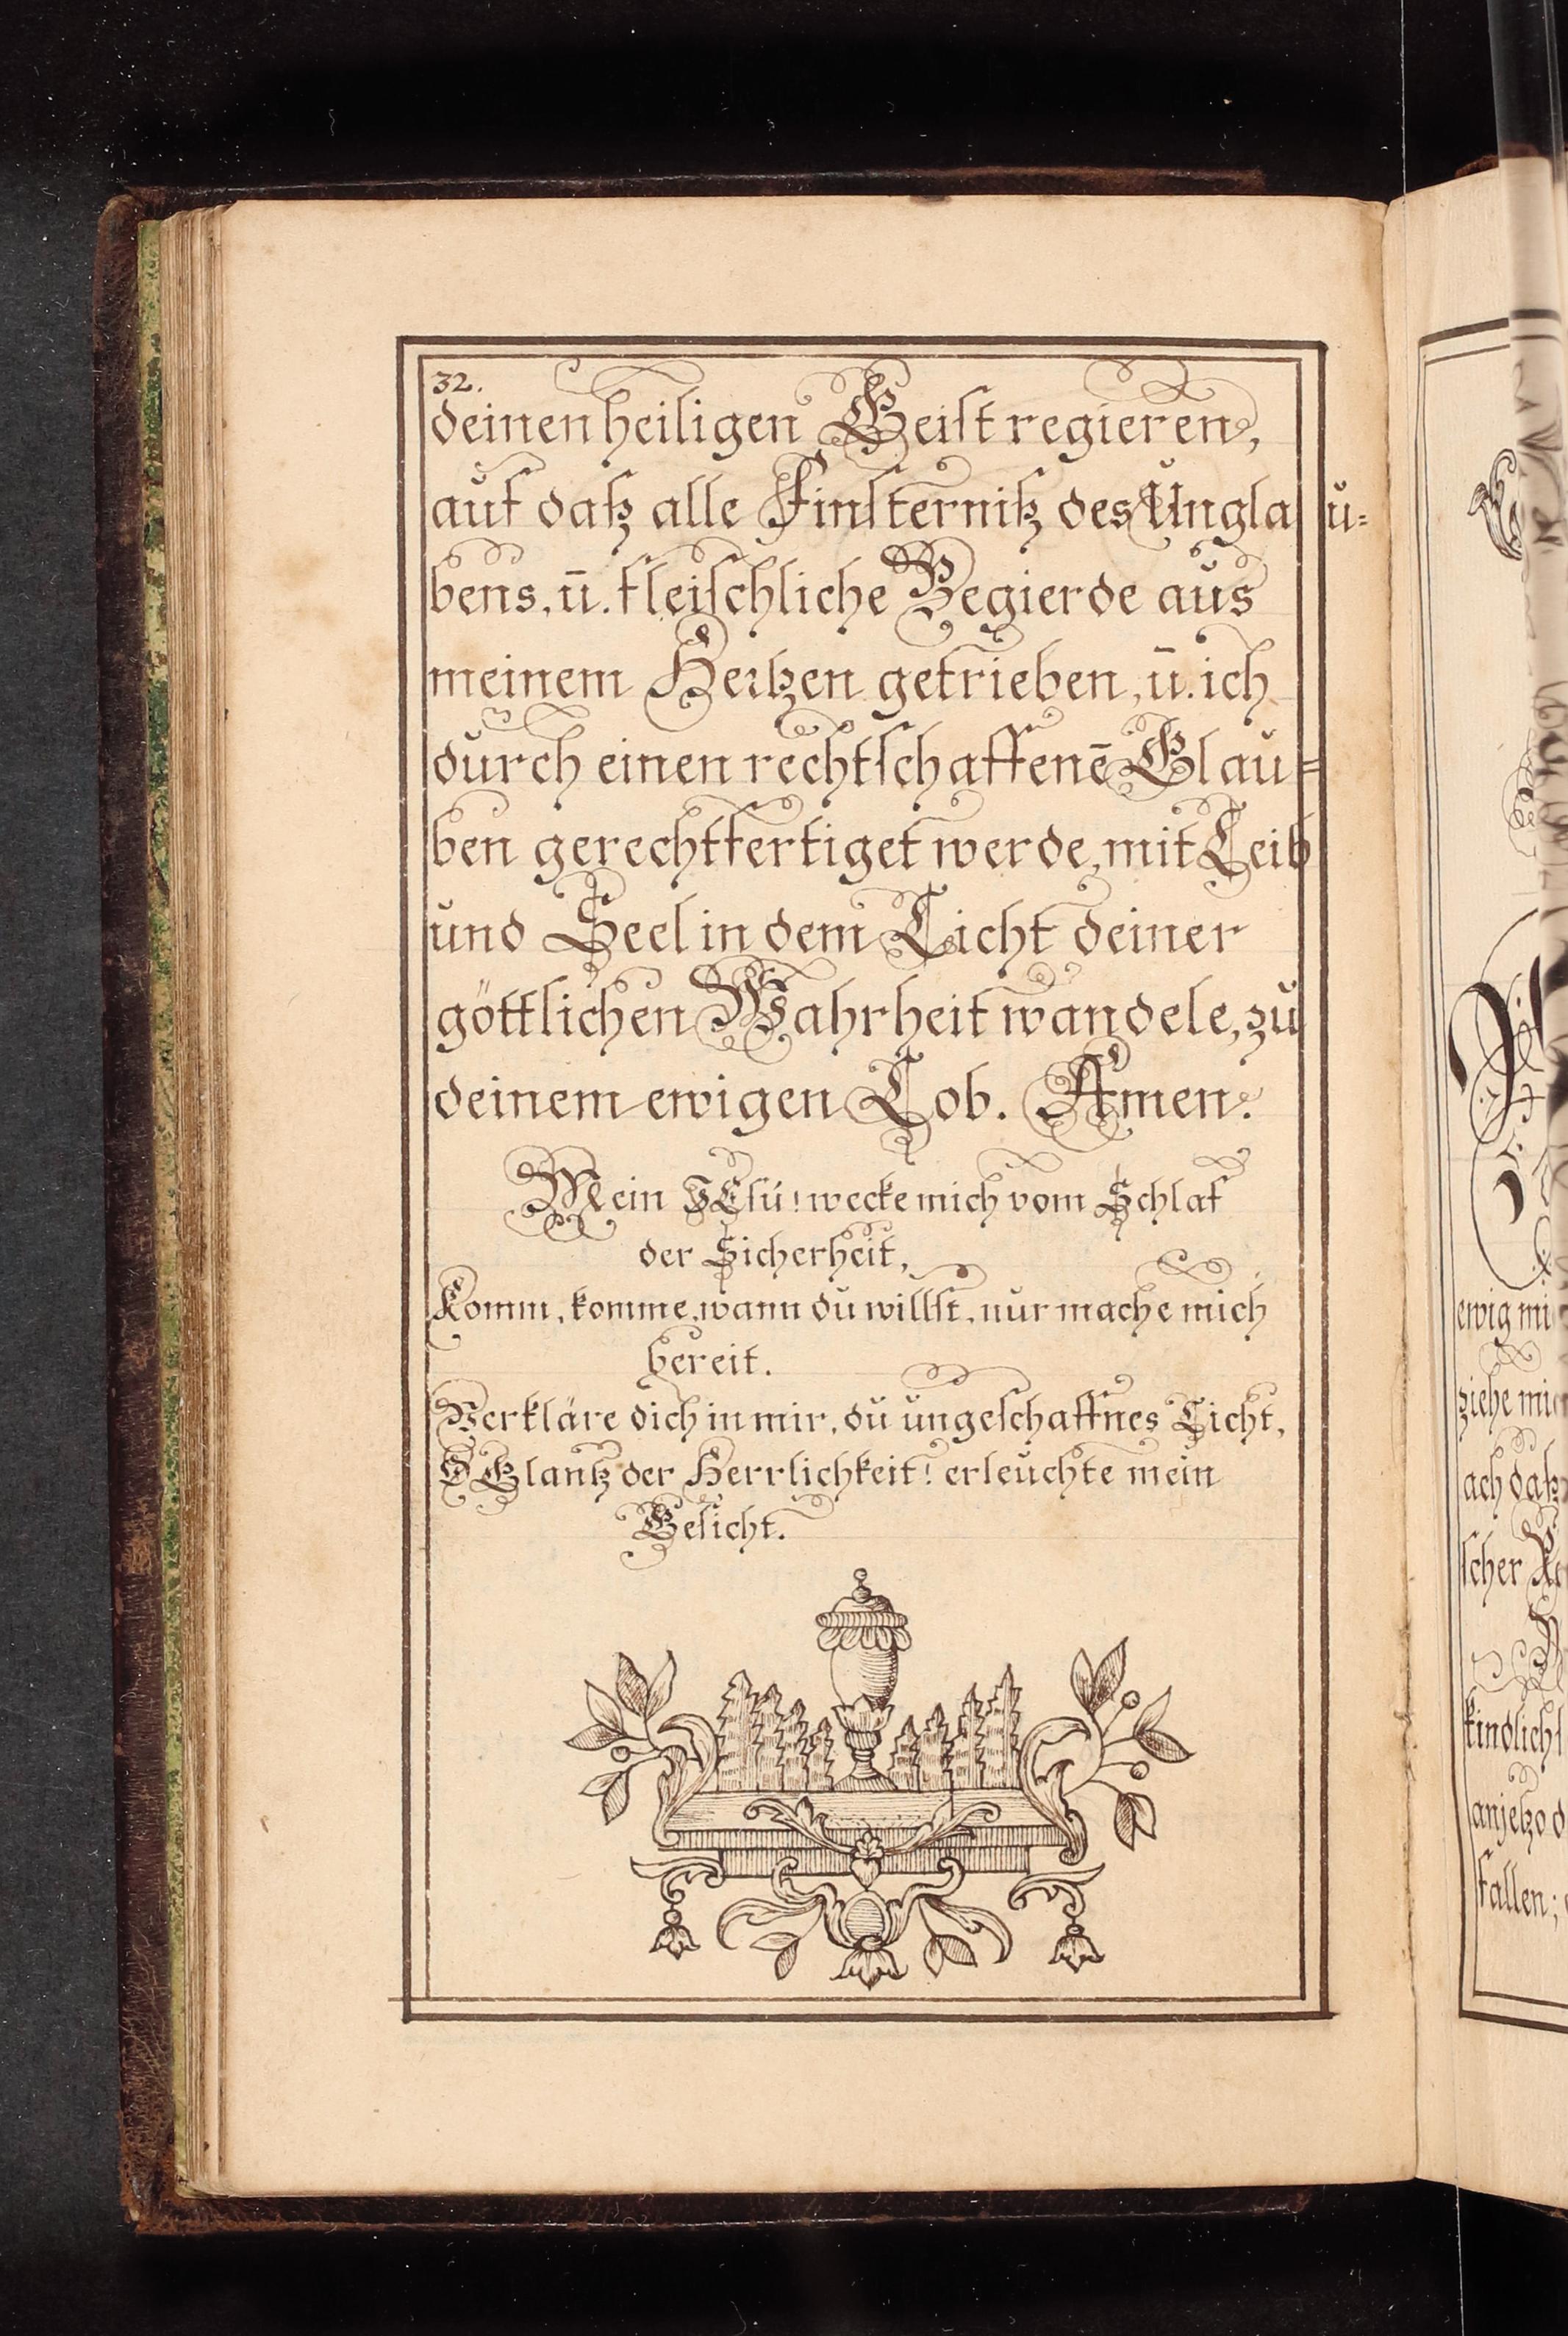 32.
deinen heiligen Geiſt regieren,
auf daß alle Finſterniß des Unglau=
bens, ū. fleiſchliche Begierde aus
meinem Hertzen getrieben, ū. ich
durch einen rechtſchaffenē Glau=
ben gerechtfertiget werde, mit Leib
und Seel in dem Licht deiner
göttlichen Wahrheit wandele, zu
deinem ewigen Lob. Amen.
Mein JEſu! wecke mich vom Schlaf
der Sicherheit,
Komm, komme, wann du willſt, nur mache mich
bereit.
Verkläre dich in mir, du ungeſchaffnes Licht,
O Glantz der Herrlichkeit! erleuchte mein
Geſicht.
ewig mi
ziehe mi
ach daß
ſcher
kindlich
anjetzo d
fallen;